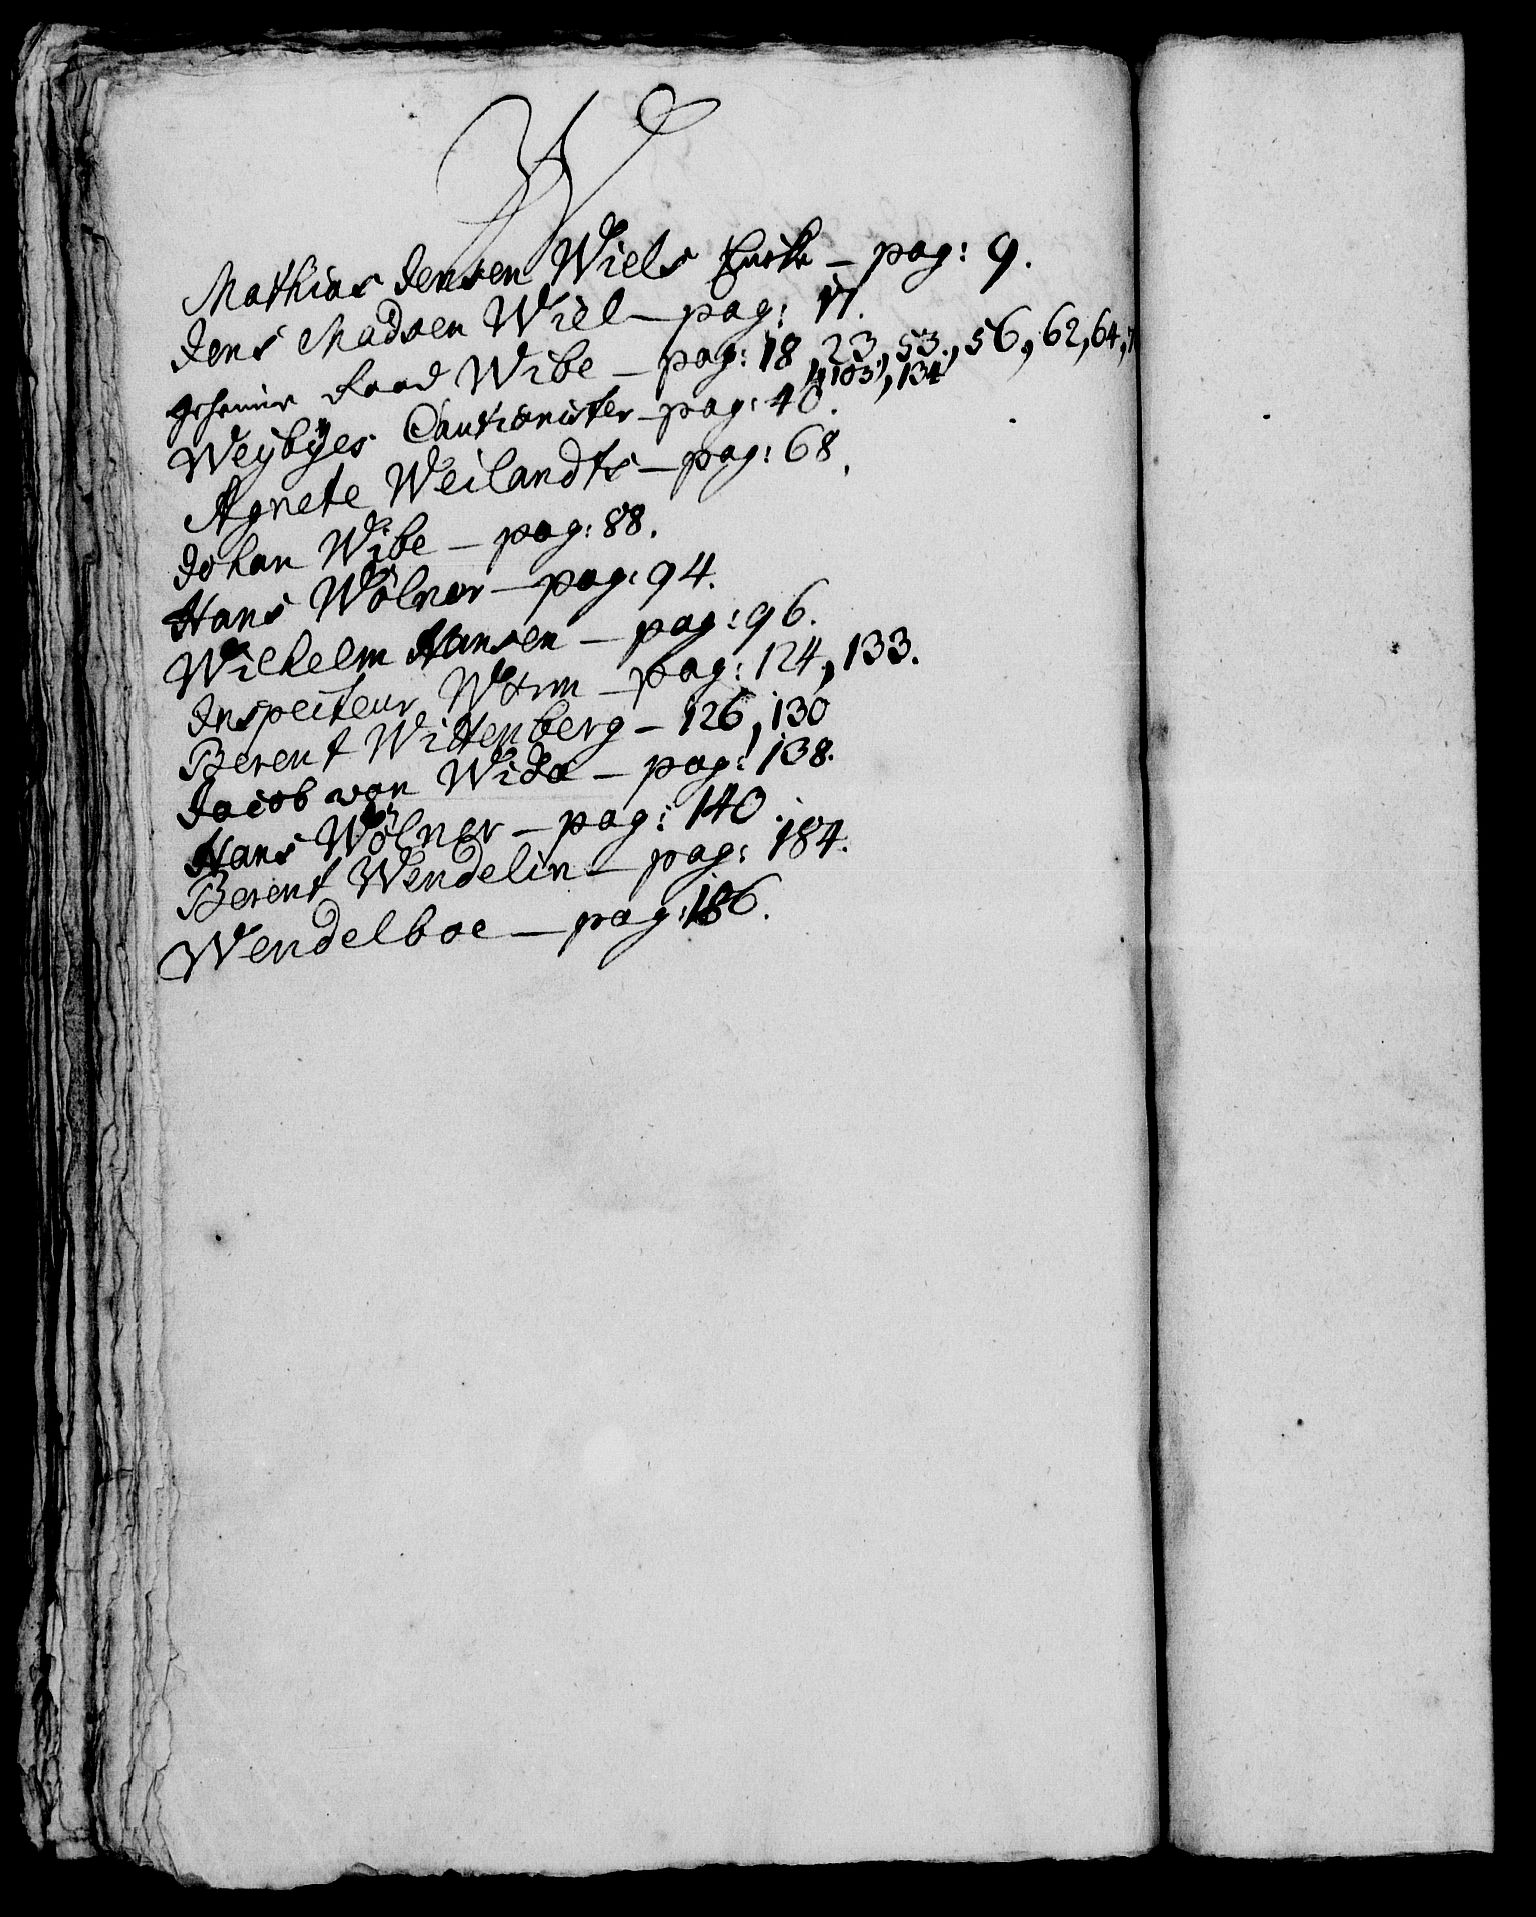 W
Mathias Jensen Wiels Enche – pag: 9.
Jens Madsen Wiel – pag: 17.
geheime Raad Wibe – pag: 18, 23, 53., 56, 62, 64,
103, 134
Weybÿes Cautionister – pag: 40.
Agnete Weilandts – pag: 68.
Johan Wibe – pag: 88.
Hans Wölner – pag: 94.
Wilhelm Hansen – pag: 96.
Inspecteur Worm – pag: 124, 133.
Berent Wittenberg – 126, 130
Jacob von Wida – pag: 138.
Hans Wölner – pag: 140.
Berent Wendelin – pag: 184.
Wendelboe – pag: 186.